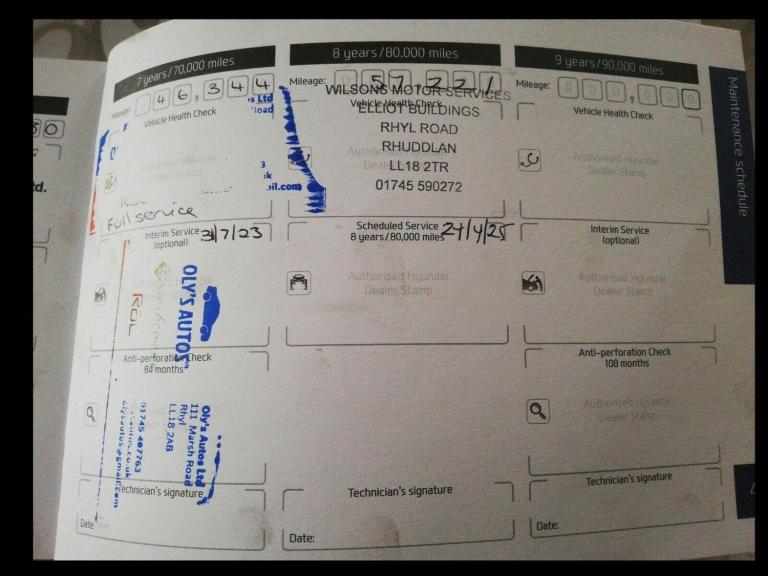 7 years/70,000 miles
Mileage: 46,344
Vehicle Health Check
Authorised Hyundai
Dealer Stamp
Full service
Interim Service
(optional)
3/7/23
OLY'S AUTOS
Anti-perforation Check
84 months
Oly's Autos Ltd
111 Marsh Road
Rhyl
LL18 2AB
01745 407763
olysautos@gmail.com
Technician's signature
Date:
8 years/80,000 miles
Mileage: 0 57,221
WILSONS MOTOR SERVICES
Vehicle Health Check
ELLIOT BUILDINGS
RHYL ROAD
RHUDDLAN
LL18 2TR
01745 590272
Scheduled Service
8 years/80,000 miles
24/4/25
Authorised Hyundai
Dealer Stamp
Technician's signature
Date:
9 years/90,000 miles
Mileage: 000,000
Vehicle Health Check
Authorised Hyundai
Dealer Stamp
Interim Service
(optional)
Authorised Hyundai
Dealer Stamp
Anti-perforation Check
108 months
Authorised Hyundai
Dealer Stamp
Technician's signature
Date:
Maintenance schedule